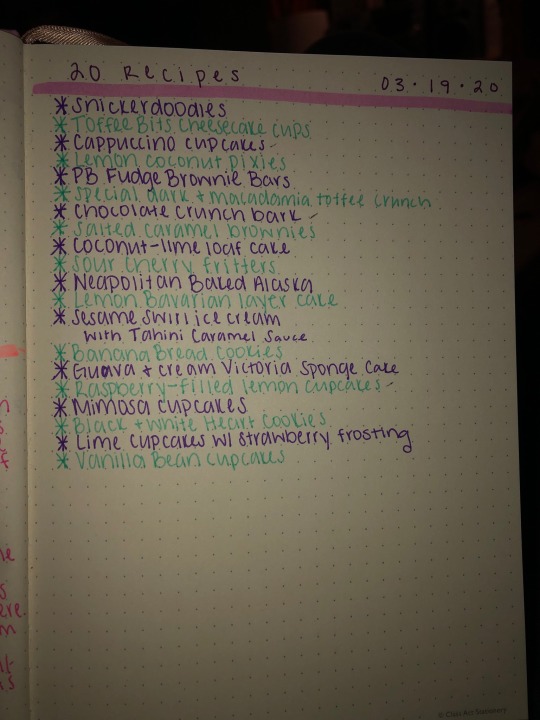 20 Recipes
03・19・20
* Snickerdoodles
* Toffee Bits Cheesecake cups
* Cappuccino cupcakes
* Lemon coconut pixies
* PB Fudge Brownie Bars
* special dark + macadamia toffee crunch
* chocolate crunch bark
* salted caramel brownies
* coconut-lime loaf cake
* sour cherry fritters
* Neapolitan Baked Alaska
* Lemon Bavarian layer cake
* sesame swirl ice cream
with Tahini Caramel Sauce
* Banana Bread cookies
* Guava + cream Victoria Sponge Cake
* Raspberry-filled lemon cupcakes
* Mimosa cupcakes
* Black + white Heart cookies
* Lime cupcakes w/ strawberry frosting
* Vanilla Bean cupcakes